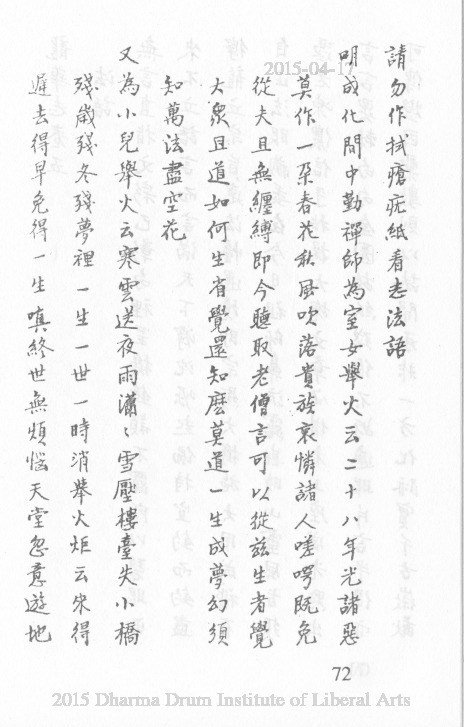 2015-04-17
請勿作拭瘡疣紙看志法語
明成化間中勤禪師為室女舉火云二十八年光諸惡
莫作一朵春花秋風吹落貴族哀憐諸人嗟呀既免
從夫且無纏縛即今聽取老僧言可以從茲生者覺
大眾且道如何生省覺還知麼莫道一生成夢幻須
知萬法盡空花
又為小兒舉火云寒雲送夜雨瀟〻雪壓樓臺失小橋
殘歲殘冬殘夢裡一生一世一時消舉火炬云來得
遲去得早免得一生嗔終世無煩惱天堂忽意遊地
72
2015 Dharma Drum Institute of Liberal Arts